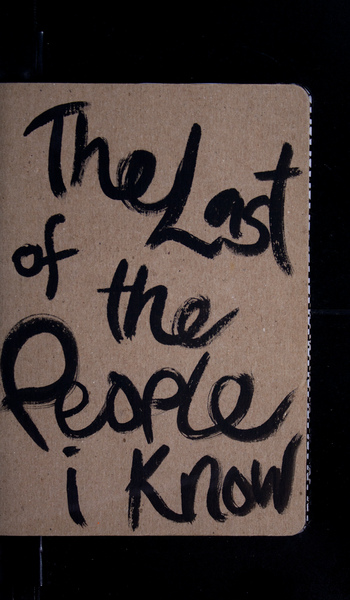 The Last
of
the
People
i Know